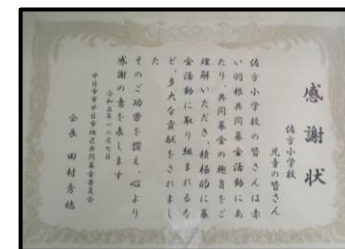 感謝状
佐方小学校
児童の皆さん
佐方小学校の皆さんは赤
い羽根共同募金活動にあ
たり、共同募金の趣旨をご
理解いただき、積極的に募
金活動に取り組まれるな
ど、多大な貢献をされまし
た
そのご功労を讃え、心より
感謝の意を表します
令和五年一二月七日
廿日市市廿日市地区共同募金委員会
会長 田村秀穂